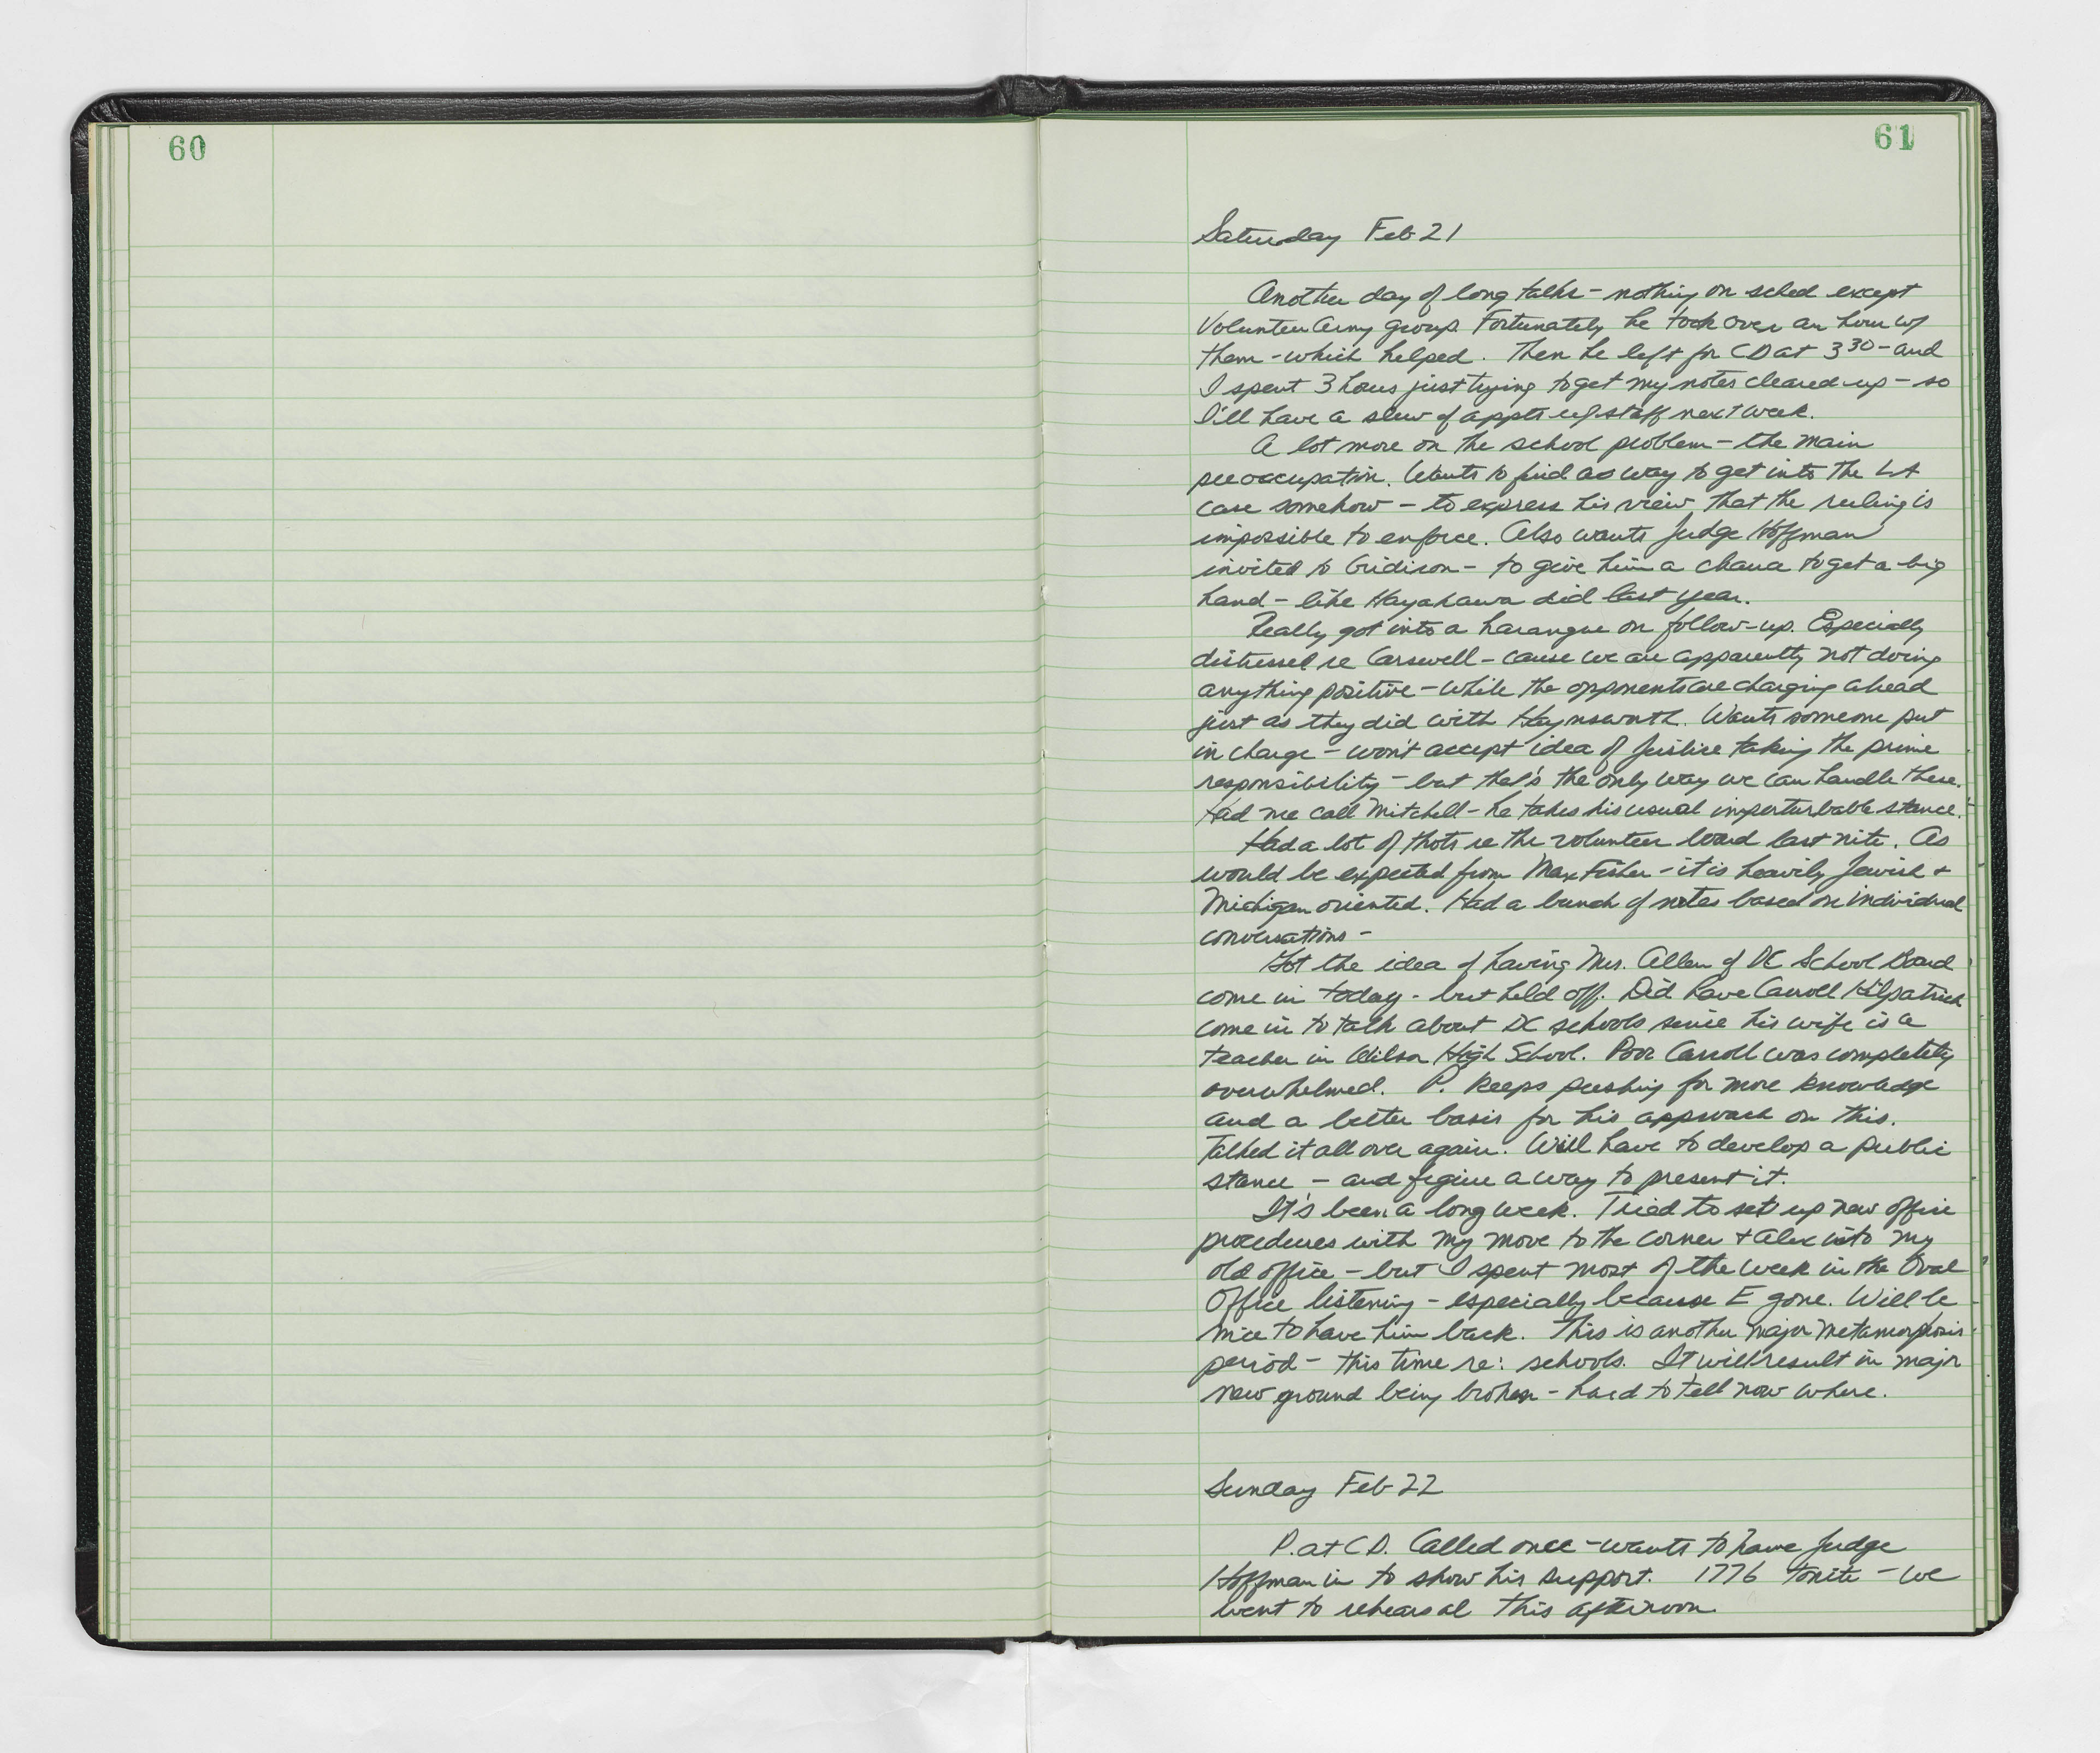 60
61
Saturday Feb 21
Another day of long talks - nothing on sched except
Volunteer Army group. Fortunately he took over an hour w/
them - which helped. Then he left for CD at 3 30 - and
I spent 3 hours just trying to get my notes cleared up - so
I'll have a slew of appts w/ staff next week.
A lot more on the school problem - the main
preoccupation. Wants to find a way to get into the LA
case somehow - to express his view that the ruling is
impossible to enforce. Also wants Judge Hoffman
invited to Gridiron - to give him a chance to get a big
hand - like Hayakawa did last year.
Really got into a harangue on follow-up. Especially
distressed re Carswell - cause we are apparently not doing
anything positive - while the opponents are charging ahead
just as they did with Haynsworth. Wants someone put
in charge - won't accept idea of Justice taking the prime
responsibility - but that's the only way we can handle these.
Had me call Mitchell - he takes his usual imperturbable stance.
Had a lot of thots re the volunteer board last nite. As
would be expected from Max Fisher - it is heavily Jewish +
Michigan oriented. Had a bunch of notes based on individual
conversations -
Got the idea of having Mrs. Allen of DC School Board
come in today - but held off. Did have Carroll Kilpatrick
come in to talk about DC schools since his wife is a
teacher in Wilson High School. Poor Carroll was completely
overwhelmed. P. keeps pushing for more knowledge
and a better basis for his approach on this.
Talked it all over again. Will have to develop a public
stance - and figure a way to present it.
It's been a long week. Tried to set up new office
procedures with my move to the corner + Alex into my
old office - but I spent most of the week in the Oval
Office listening - especially because E gone. Will be
nice to have him back. This is another major metamorphosis
period - this time re: schools. It will result in major
new ground being broken - hard to tell now where.
Sunday Feb 22
P. at CD. Called once - wants to have Judge
Hoffman in to show his support. 1776 tonite - we
went to rehearsal this afternoon